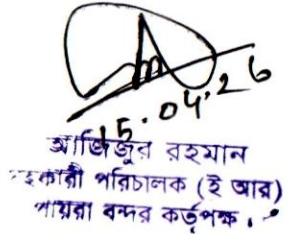 15.04.26
আজিজুর রহমান
সহকারী পরিচালক (ই আর)
পায়রা বন্দর কর্তৃপক্ষ।